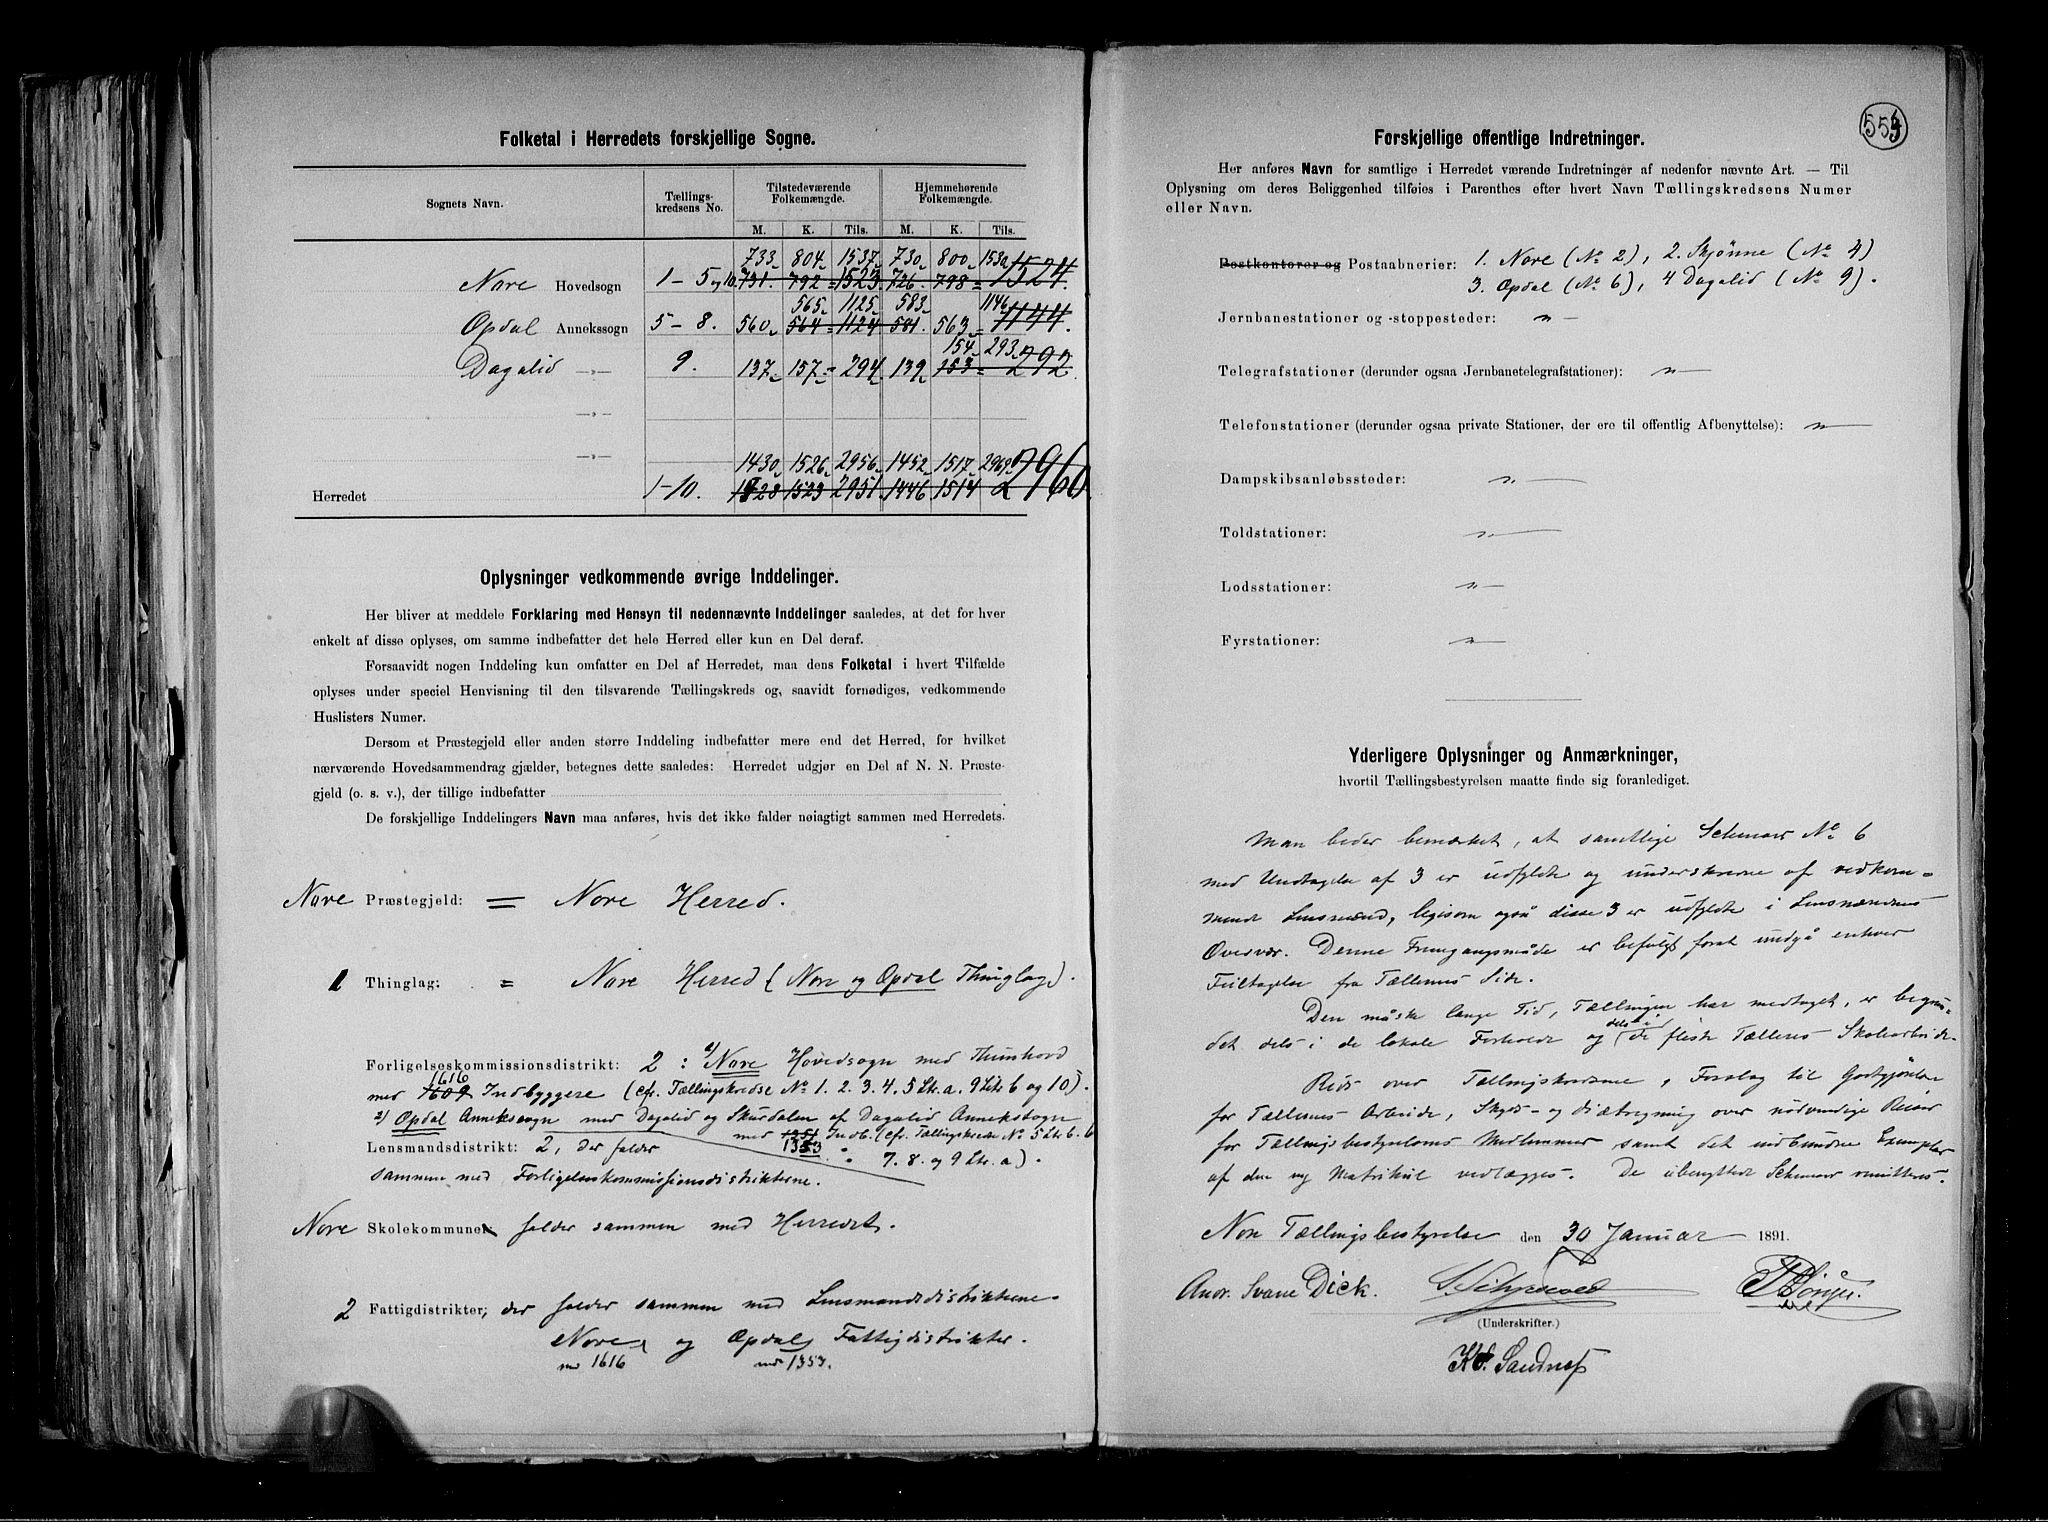 Folketal i Herredets forskjellige Sogne.
Sognets Navn. Tællings-kredsens No. Tilstedeværende Folkemængde. Hjemmehørende Folkemængde.
M. K. Tils. M. K. Tils.
733 804 1537 730 800 1530
Nore Hovedsogn 1-5 og 10. 731. 792 1523 726. 798 1524.
565 1125 583 1146
Opdal Annekssogn 5-8. 560 564 1124 581. 563 1144.
154 293
Dagalid -„- 9. 137 157 294 139 153 292.
-„-
-„-
1430 1526 2956 1452 1517 2969
Herredet 1-10. 1428 1523 2951 1446 1514 2960
Oplysninger vedkommende øvrige Inddelinger.
Her bliver at meddele Forklaring med Hensyn til nedennævnte Inddelinger saaledes, at det for hver
enkelt af disse oplyses, om samme indbefatter det hele Herred eller kun en Del deraf.
Forsaavidt nogen Inddeling kun omfatter en Del af Herredet, maa dens Folketal i hvert Tilfælde
oplyses under speciel Henvisning til den tilsvarende Tællingskreds og, saavidt fornødiges, vedkommende
Huslisters Numer.
Dersom et Præstegjeld eller anden større Inddeling indbefatter mere end det Herred, for hvilket
nærværende Hovedsammendrag gjælder, betegnes dette saaledes: Herredet udgjør en Del af N. N. Præste-
gjeld (o. s. v.), der tillige indbefatter
De forskjellige Inddelingers Navn maa anføres, hvis det ikke falder nøiagtigt sammen med Herredets.
Nore Præstegjeld: = Nore Herred.
1 Thinglag: = Nore Herred (Nore og Opdal Thinglag).
Forligelseskommissionsdistrikt: 2: 1) Nore Hovedsogn med Thunhovd
1616
med 1609 Indbyggere (cfr. Tællingskredse No 1. 2. 3. 4. 5 Ltr. a. 9 Ltr. b og 10).
2) Opdal Annekssogn med Dagalid og Skurdalen af Dagalid Annekssogn
med 1351 Indb. (cfr. Tællingskredse No 5 Ltr. b. 6
Lensmandsdistrikt: 2, der falder 1353 7. 8. og 9 Ltr. a).
sammen med Forligelseskommissionsdistrikterne.
Nore Skolekommuner falder sammen med Herredet.
2 Fattigdistrikter, der falder sammen med Lensmandsdistrikterne.
Nore og Opdals Fattigdistrikter.
med 1616 med 1353.
554
Forskjellige offentlige Indretninger.
Her anføres Navn for samtlige i Herredet værende Indretninger af nedenfor nævnte Art. — Til
Oplysning om deres Beliggenhed tilføies i Parenthes efter hvert Navn Tællingskredsens Numer
eller Navn.
Postkontorer og Postaabnerier: 1. Nore (No 2), 2. Skjønne (No 4)
3. Opdal (No 6), 4 Dagalid (No 9).
Jernbanestationer og -stoppesteder: „ —
Telegrafstationer (derunder ogsaa Jernbanetelegrafstationer): „ —
Telefonstationer (derunder ogsaa private Stationer, der ere til offentlig Afbenyttelse): „ —
Dampskibsanløbssteder: „ —
Toldstationer: „ —
Lodsstationer: „ —
Fyrstationer: „ —
Yderligere Oplysninger og Anmærkninger,
hvortil Tællingsbestyrelsen maatte finde sig foranlediget.
Man beder bemærket, at samtlige Schemaer No 6
med Undtagelse af 3 er udfyldte og underskrevne af vedkom=
mende Lensmænd, ligesom også disse 3 er udfyldte i Lensmændenes
Overvær. Denne Fremgangsmåde er befulgt forat undgå enhver
Feiltagelse fra Tællernes Side.
Den måske lange Tid, Tællingen har medtaget, er begrun-
det dels i de lokale Forholde og dels i de fleste Tælleres Skolearbeide.
Rids over Tællingskredsene, Forslag til Godtgjørelse
for Tællernes Arbeide, Skyds- og Diætregning over nødvendige Reiser
for Tællingsbestyrelsens Medlemmer samt det indbundne Exemplar
af den ny Matrikul vedlægges. De ubenyttede Schemaer remitteres.
Nore Tællingsbestyrelse den 30 Januar 1891.
Andr. Svane Dick.
(Underskrifter.)